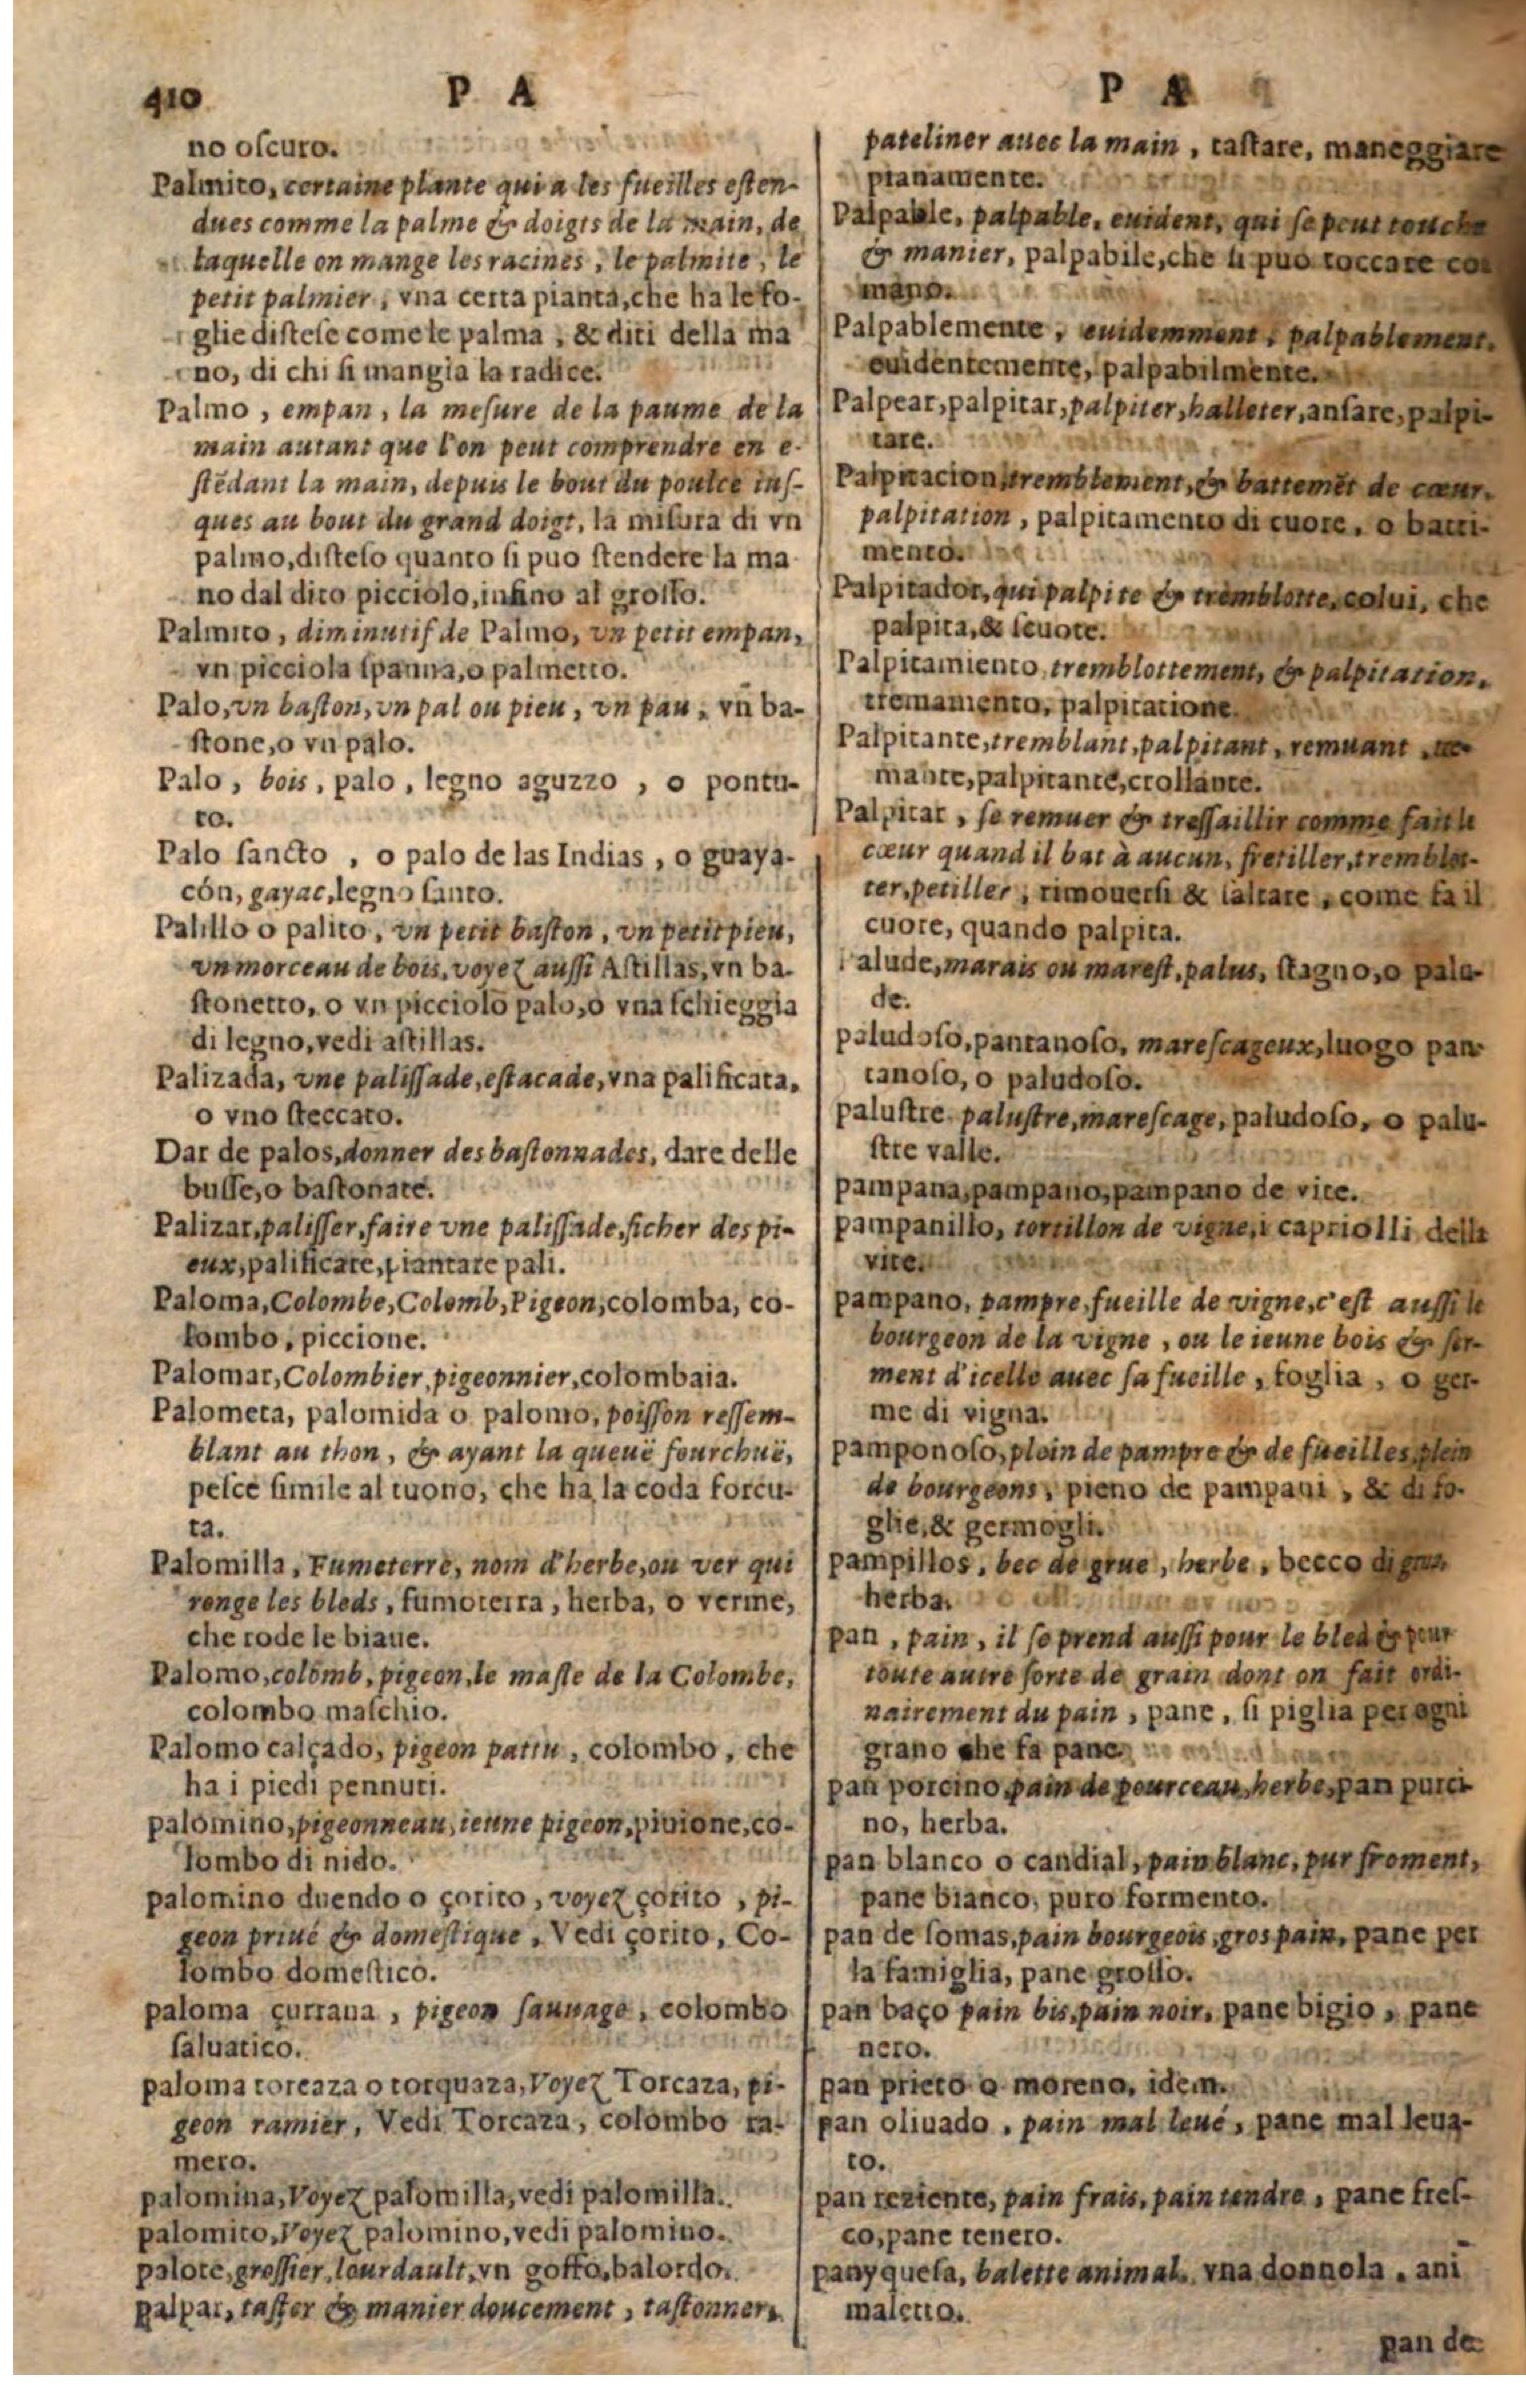 410 P A
no oſcuro.
Palmito, certaine plante qui a les fueilles eſten-
dues comme la palme & doigts de la main, de
laquelle on mange les racines, le palmite, le
petit palmier, vna certa pianta, che ha le fo-
glie diſteſe come le palma, & diti della ma
no, di chi ſi mangia la radice.
Palmo, empan, la meſure de la paume de la
main autant que l'on peut comprendre en e-
ſtẽdant la main, depuis le bout du poulce iuſ-
ques au bout du grand doigt, la miſura di vn
palmo, diſteſo quanto ſi puo ſtendere la ma
no dal dito picciolo, inſino al groſſo.
Palmito, diminutif de Palmo, vn petit empan,
vn picciola ſpanna, o palmetto.
Palo, vn baſton, vn pal ou pieu, vn pau, vn ba-
ſtone, o vn palo.
Palo, bois, palo, legno aguzzo, o pontu-
to.
Palo ſancto, o palo de las Indias, o guaya-
cón, gayac, legno ſanto.
Palillo o palito, vn petit baſton, vn petit pieu,
vn morceau de bois, voyez auſſi Aſtillas, vn ba-
ſtonetto, o vn picciolo palo, o vna ſchieggia
di legno, vedi aſtillas.
Palizada, vne paliſſade, eſtacade, vna palificata,
o vno ſteccato.
Dar de palos, donner des baſtonnades, dare delle
buſſe, o baſtonate.
Palizar, paliſſer, faire vne paliſſade, ficher des pi-
eux, palificare, piantare pali.
Paloma, Colombe, Colomb, Pigeon, colomba, co-
lombo, piccione.
Palomar, Colombier, pigeonnier, colombaia.
Palometa, palomida o palomo, poiſſon reſſem-
blant au thon, & ayant la queuë fourchuë,
peſce ſimile al tuono, che ha la coda forcu-
ta.
Palomilla, Fumeterre, nom d'herbe, ou ver qui
ronge les bleds, fumoterra, herba, o verme,
che rode le biaue.
Palomo, colomb, pigeon, le maſle de la Colombe,
colombo maſchio.
Palomo calçado, pigeon pattu, colombo, che
ha i piedi pennuti.
palomino, pigeonneau, ieune pigeon, piuione, co-
lombo di nido.
palomino duendo o çorito, voyez çorito, pi-
geon priué & domeſtique, Vedi çorito, Co-
lombo domeſtico.
paloma çurrana, pigeon ſauuage, colombo
ſaluatico.
paloma torcaza o torquaza, Voyez Torcaza, pi-
geon ramier, Vedi Torcaza, colombo ra-
mero.
palomina, Voyez palomilla, vedi palomilla.
palomito, Voyez palomino, vedi palomino.
palote, groſſier, lourdault, vn goffo, balordo.
palpar, taſter & manier doucement, taſtonner,
P A
pateliner auec la main, taſtare, maneggiare
pianamente.
Palpable, palpable, euident, qui ſe peut touche
& manier, palpabile, che ſi puo toccare con
mano.
Palpablemente, euidemment, palpablement,
euidentemente, palpabilmente.
Palpear, palpitar, palpiter, halleter, anſare, palpi-
tare.
Palpitacion, tremblement, & battemẽt de cœur,
palpitation, palpitamento di cuore, o batti-
mento.
Palpitador, qui palpite & tremblotte, colui, che
palpita, & ſcuote.
Palpitamiento, tremblottement, & palpitation,
tremamento, palpitatione.
Palpitante, tremblant, palpitant, remuant, tre-
mante, palpitante, crollante.
Palpitar, ſe remuer & treſſaillir comme fait le
cœur quand il bat à aucun, fretiller, tremblot-
ter, petiller, rimouerſi & ſaltare, come fa il
cuore, quando palpita.
Palude, marais ou mareſt, palus, ſtagno, o palu-
de.
paludoſo, pantanoſo, mareſcageux, luogo pan-
tanoſo, o paludoſo.
paluſtre paluſtre, mareſcage, paludoſo, o palu-
ſtre valle.
pampana, pampano, pampano de vite.
pampanillo, tortillon de vigne, i capriolli della
vite.
pampano, pampre, fueille de vigne, c'eſt auſſi le
bourgeon de la vigne, ou le ieune bois & ſer-
ment d'icelle auec ſa fueille, foglia, o ger-
me di vigna.
pamponoſo, plein de pampre & de fueilles, plein
de bourgeons, pieno de pampani, & di fo-
glie, & germogli.
pampillos, bec de grue, herbe, becco di grua,
herba.
pan, pain, il ſe prend auſſi pour le bled & pour
toute autre ſorte de grain dont on fait ordi-
nairement du pain, pane, ſi piglia per ogni
grano che fa pane.
pan porcino, pain de pourceau, herbe, pan purci-
no, herba.
pan blanco o candial, pain blanc, pur froment,
pane bianco, puro formento.
pan de ſomas, pain bourgeois, gros pain, pane per
la famiglia, pane groſſo.
pan baço pain bis, pain noir, pane bigio, pane
nero.
pan prieto o moreno, idem.
pan oliuado, pain mal leué, pane mal leua-
to.
pan reziente, pain frais, pain tendre, pane freſ-
co, pane tenero.
panyqueſa, balette animal, vna donnola, ani
maletto.
pan de